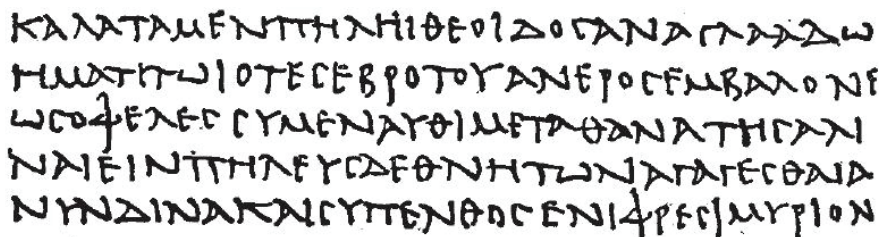 ΚΑΛΑΤΑΜΕΝΠΗΛΗΙΘΕΟΙΔΟCΑΝΑΓΛΑΑΔΩ
ΗΜΑΤΙΤΩΙΟΤΕCΕΒΡΟΤΟΥΑΝΕΡΟCΕΜΒΑΛΟΝΕ
ΩCΟΦΕΛΕCCΥΜΕΝΑΥΘΙΜΕΤΑΘΑΝΑΤΗCΑΛΙ
ΝΑΙΕΙΝΠΗΛΕΥCΔΕΘΝΗΤΩΝΑΓΑΓΕCΘΑΙΑ
ΝΥΝΔΙΝΑΚΑΙCΥΠΕΝΘΟCΕΝΙΦΡΕCΙΜΥΡΙΟΝ